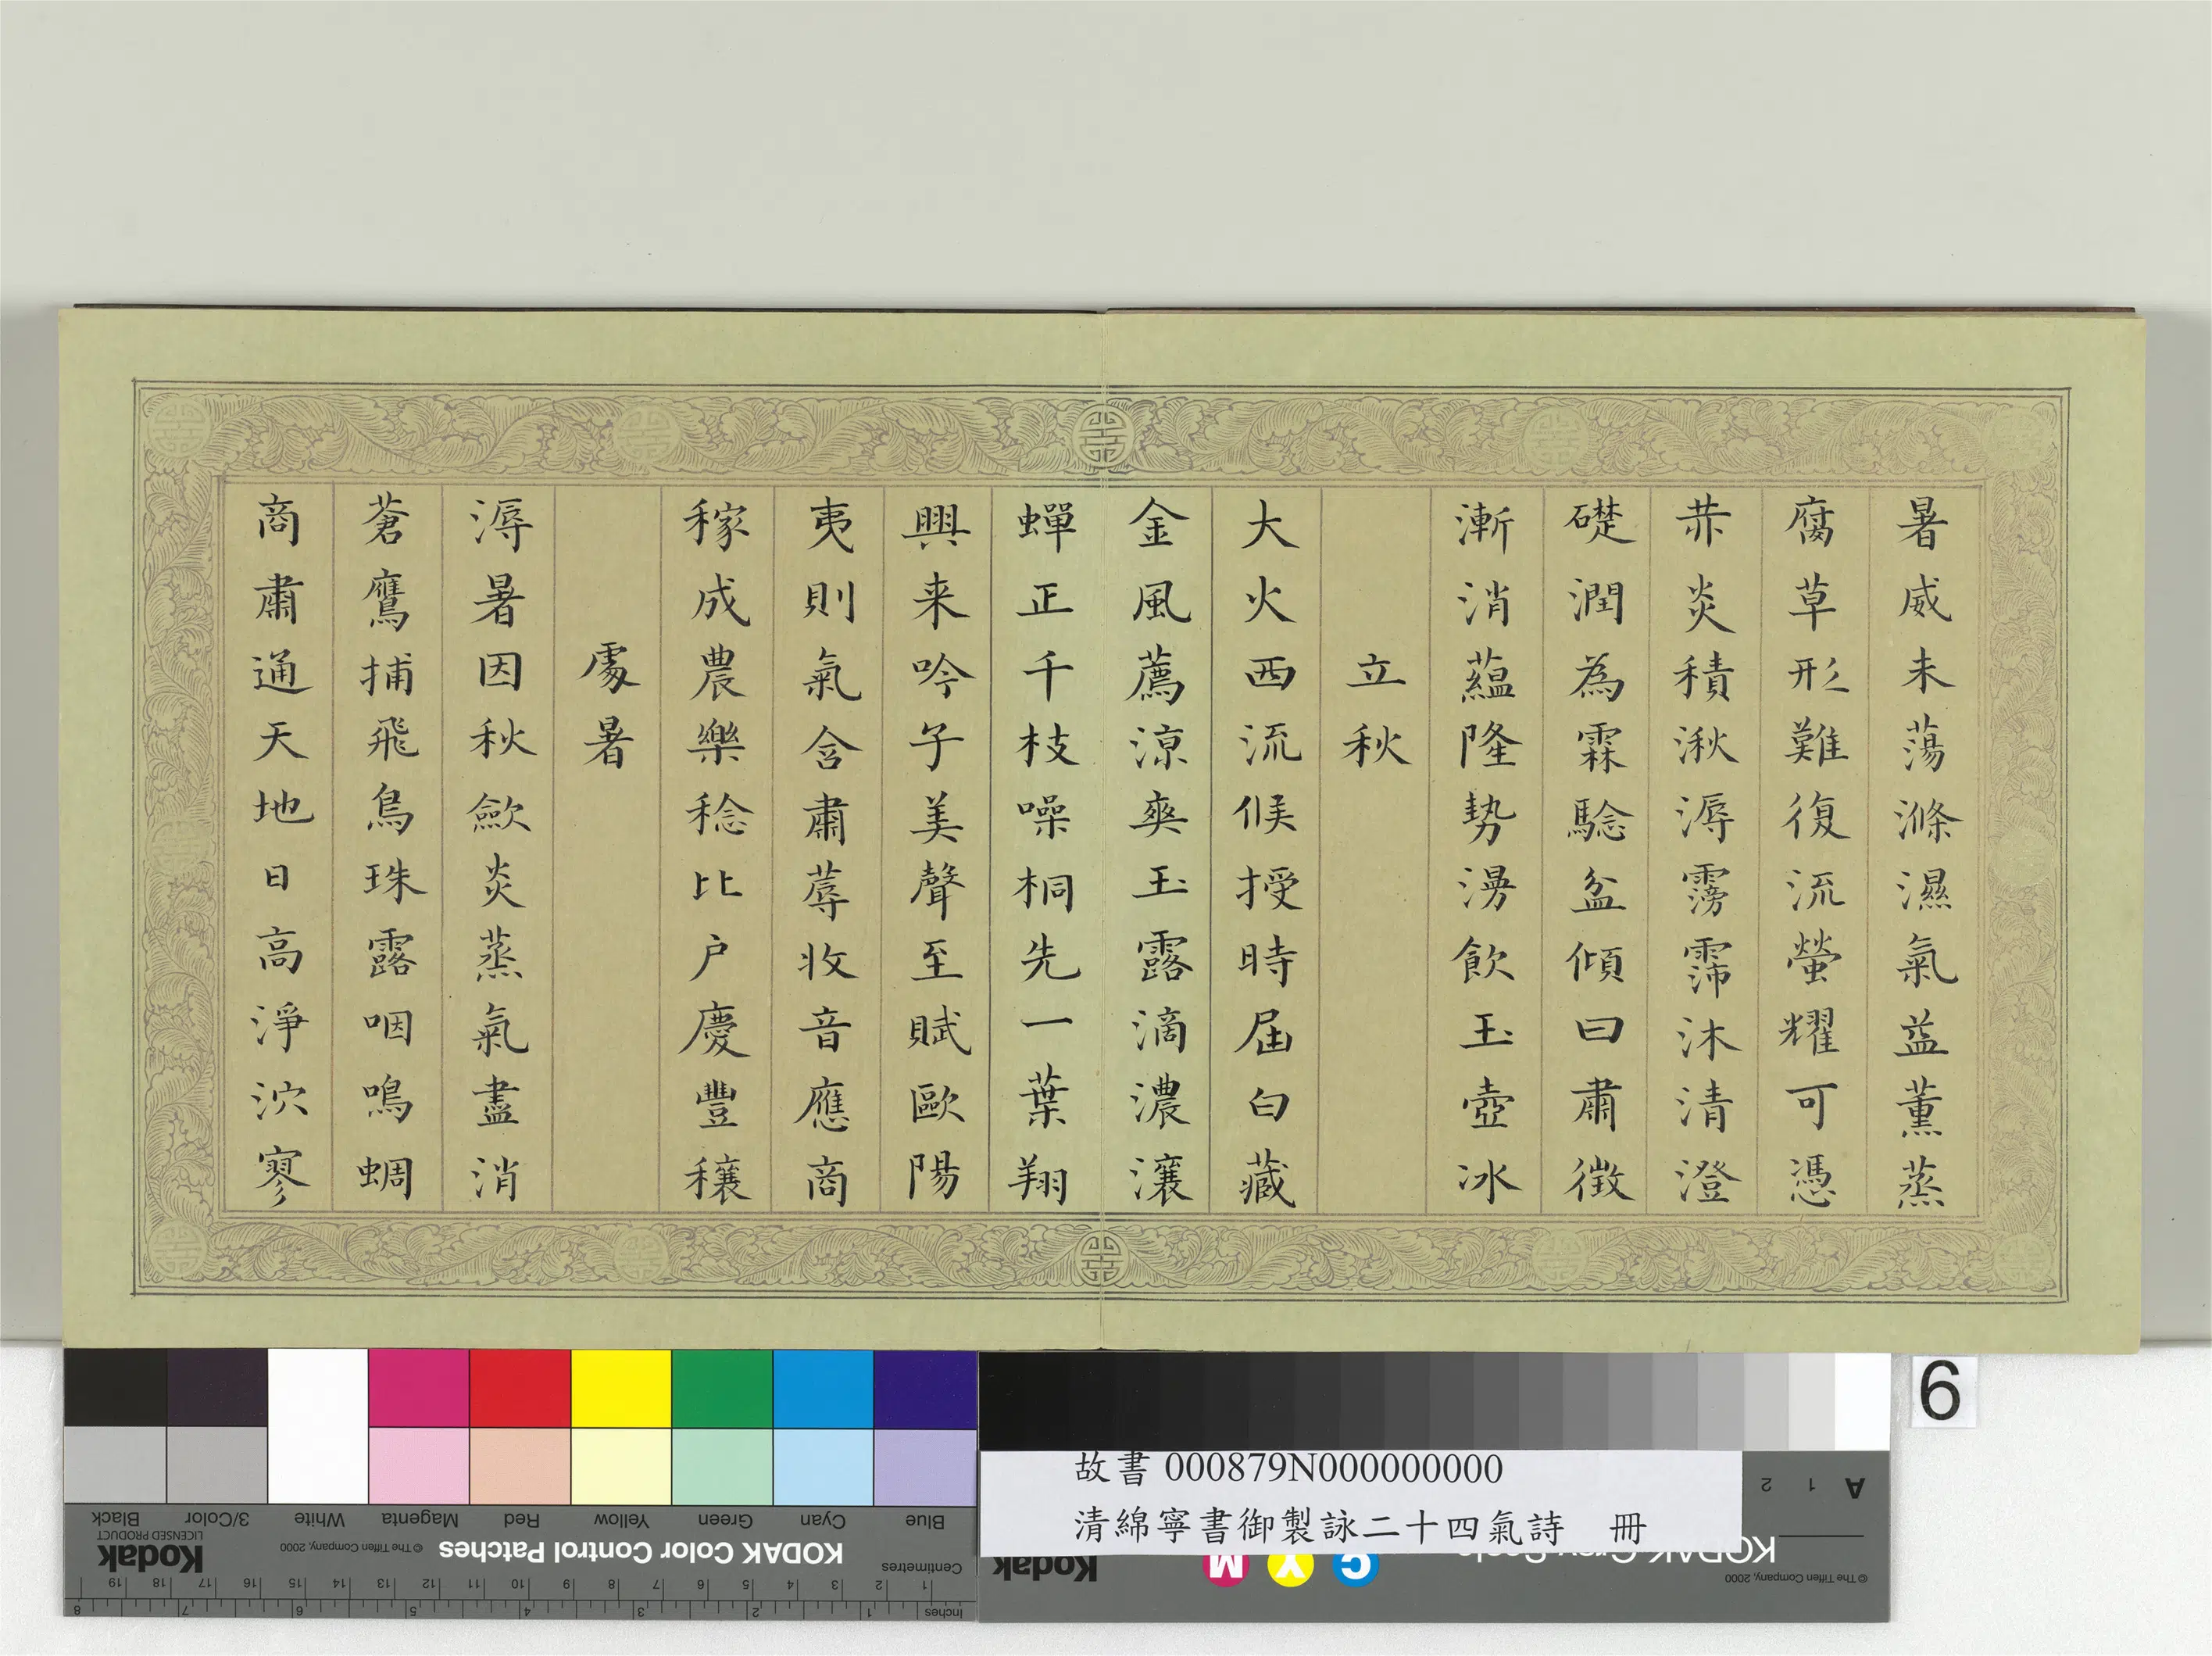 暑威未蕩滌濕氣益薰蒸
腐草形難復流螢耀可憑
恭炎積湫溽霶霈沐清澄
礎潤為霖驗盆傾曰肅徵
漸消蘊隆勢湯飲玉壺冰
立秋
大火西流候授時屆白藏
金風薦涼爽玉露滴濃瀼
蟬正千枝噪桐先一葉翔
興来吟子美聲至賦歐陽
夷則氣含肅蓐收音應商
稼成農樂稔比戶慶豐穰
處暑
溽暑因秋歛炎蒸氣盡消
蒼鷹捕飛鳥珠露咽鳴蜩
商肅通天地日高淨泬寥
6
故書 000879N000000000
清綿寧書御製詠二十四氣詩　冊
Blue Cyan Green Yellow Red Magenta White 3/Color Black
KODAK Color Control Patches © The Tiffen Company, 2000 Kodak LICENSED PRODUCT
Centimetres 1 2 3 4 5 6 7 8 9 10 11 12 13 14 15 16 17 18 19
Inches 1 2 3 4 5 6 7 8
A 1 2
© The Tiffen Company, 2000 KODAK Gray Scale
C Y M Kodak